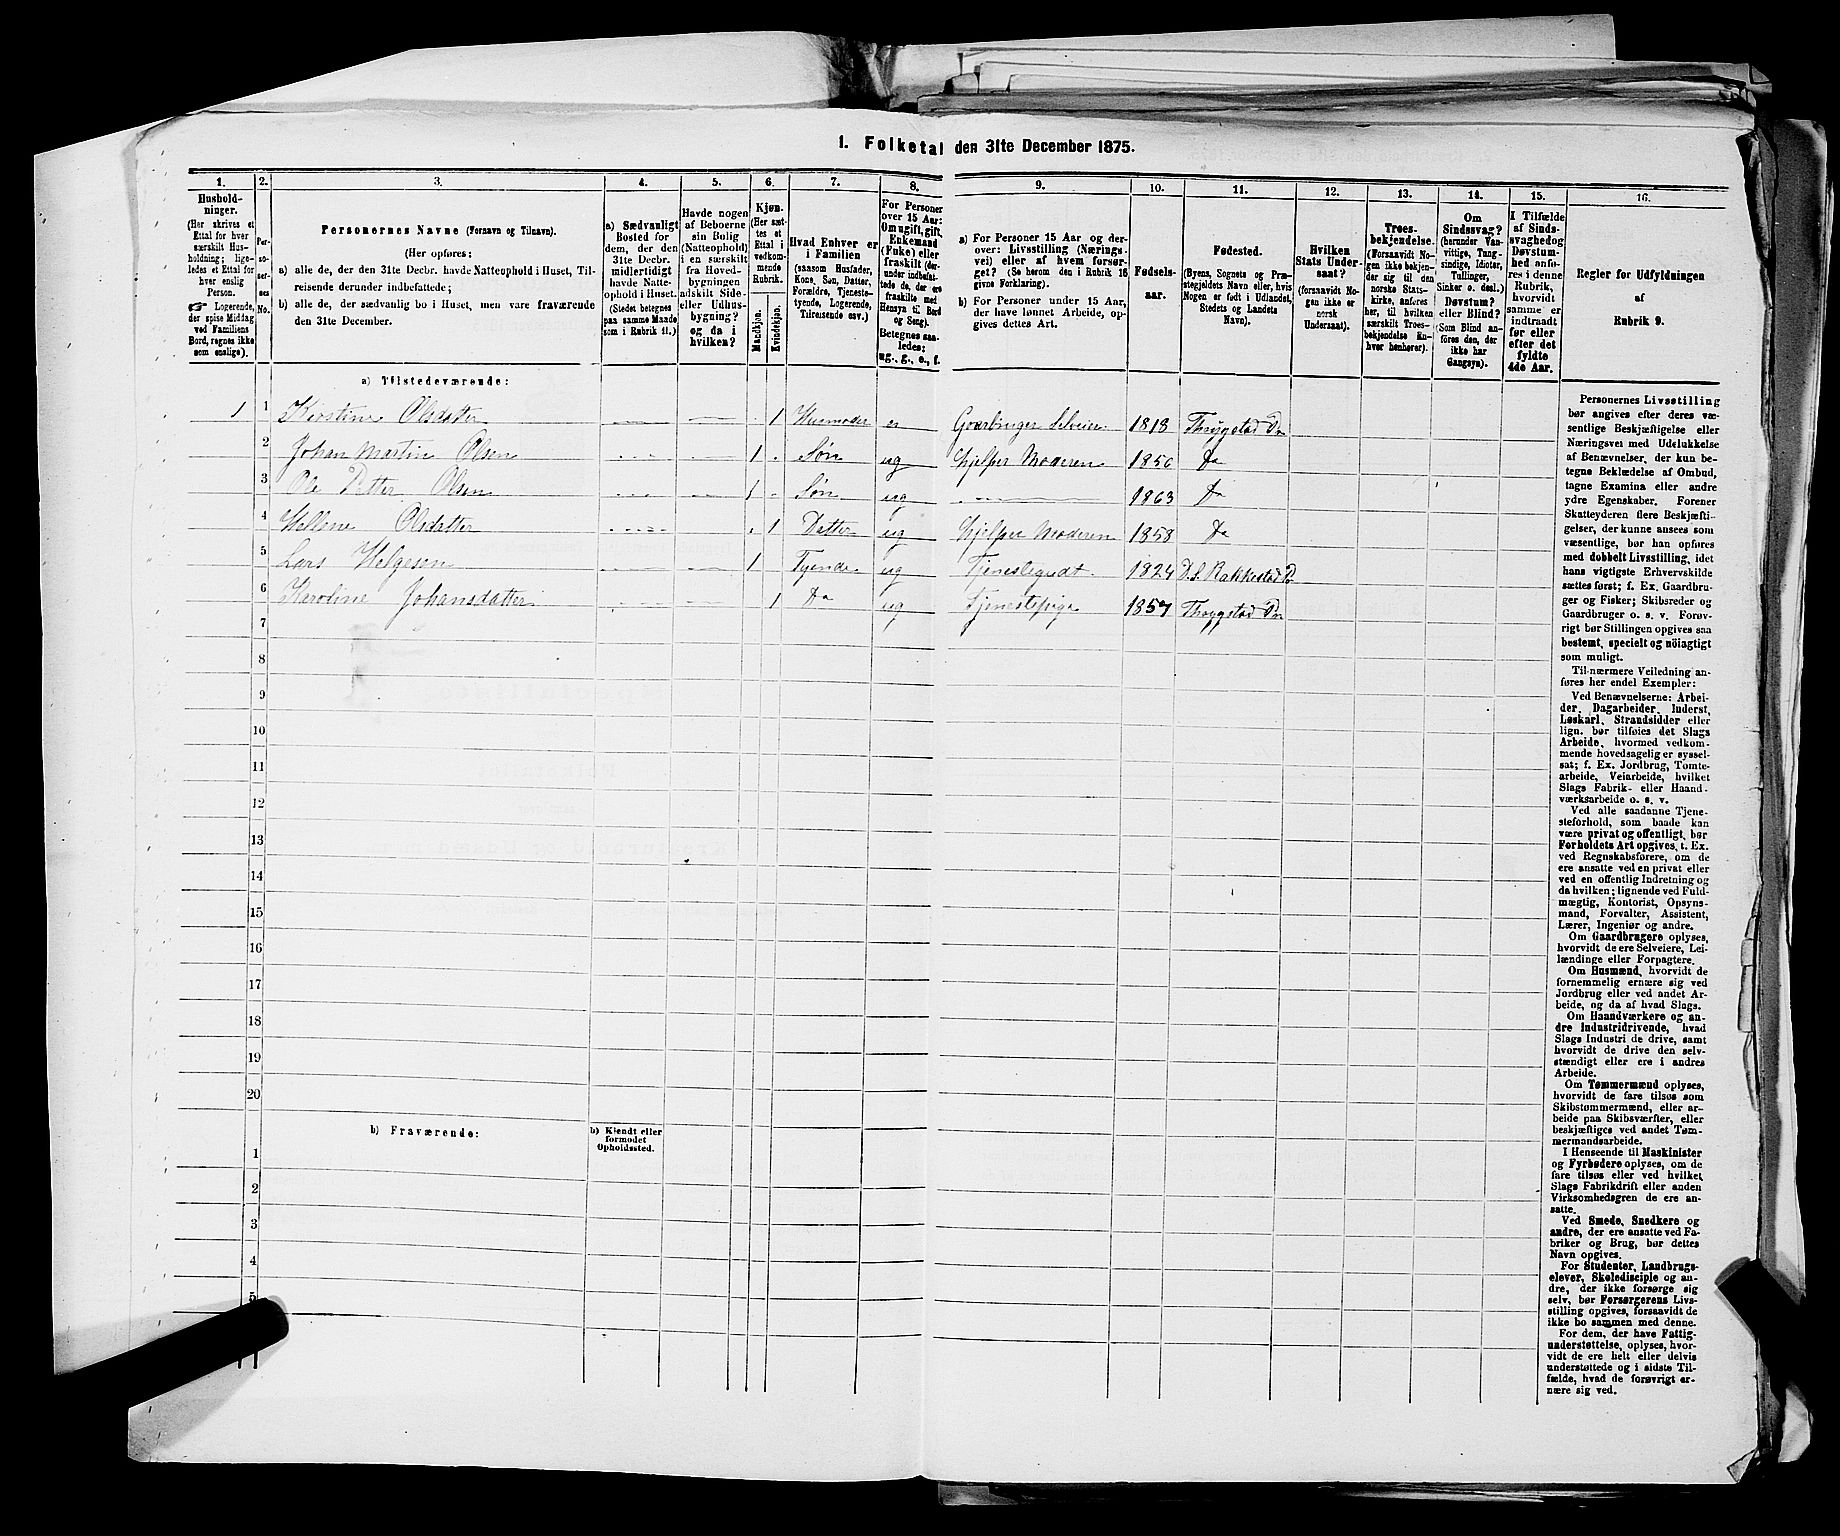 1. Folketal den 31te December 1875.
1. 2. 3. 4. 5. 6. 7. 8. 9. 10. 11. 12. 13. 14. 15. 16.
Hushold-
ninger.
(Her skrives et
Ettal for hver
særskilt Hus-
holdning; lige-
ledes et Ettal for
hver enslig
Person.
☞ Logerende,
der spise Middag
ved Familiens
Bord, regnes ikke
som enslige).
Per-
so-
ner-
nes
No.
Personernes Navne (Fornavn og Tilnavn).
(Her opføres:
a) alle de, der den 31te Decbr. havde Natteophold i Huset, Til-
reisende derunder indbefattede;
b) alle de, der sædvanlig bo i Huset, men vare fraværende
den 31te December.
a) Sædvanligt
Bosted for
dem, der den
31te Decbr.
midlertidigt
havde Natte-
ophold i Huset.
(Stedet betegnes
paa samme Maade
som i Rubrik 11.)
Havde nogen
af Beboerne
sin Bolig
(Natteophold)
i en særskilt
fra Hoved-
bygningen
adskilt Side-
eller Udhus-
bygning?
og da i
hvilken?
Kjøn.
(Her sæt-
tes et
Ettal i
vedkom-
mende
Rubrik.
Mandkjøn.
Kvindekjøn.
Hvad Enhver er
i Familien
(saasom Husfader,
Kone, Søn, Datter,
Forældre, Tjeneste-
tyende, Logerende,
Tilreisende osv.)
For Personer
over 15 Aar:
Om ugift, gift,
Enkemand
(Enke) eller
fraskilt (der-
under indbefat-
tede de, der ere
fraskilte med
Hensyn til Bord
og Seng).
Betegnes saa-
ledes:
ug., g., e., f.
a) For Personer 15 Aar og der-
over: Livsstilling (Nærings-
vei) eller af hvem forsør-
get? (Se herom den i Rubrik 16
givne Forklaring).
b) For Personer under 15 Aar,
der have lønnet Arbeide, op-
gives dettes Art.
Fødsels-
aar.
Fødested.
(Byens, Sognets og Præ-
stegjeldets Navn eller, hvis
Nogen er født i Udlandet,
Stedets og Landets
Navn).
Hvilken
Stats Under-
saat?
(forsaavidt No-
gen ikke er
norsk
Undersaat).
Troes-
bekjendelse.
(Forsaavidt No-
gen ikke bekjen-
der sig til den
norske Stats-
kirke, anføres
her, til hvilken
særskilt Troes-
bekjendelse En-
hver henhører).
Om
Sindssvag?
(herunder Van-
vittige, Tung-
sindige, Idioter,
Tullinger,
Sinker o. desl.)
Døvstum?
eller Blind?
(Som Blind an-
føres den, der
ikke har
Gangsyn).
I Tilfælde
af Sinds-
svaghed og
Døvstum-
hed anfø-
res i denne
Rubrik,
hvorvidt
samme er
indtraadt
før eller
efter det
fyldte
4de Aar.
Regler for Udfyldningen
af
Rubrik 9.
a) Tilstedeværende:
1 1 Kirstine Olsdatter 1 Husmoder e Gaardbruger Selveier 1818 Thrygstad Pr
2 Johan Martin Olsen 1 Søn ug hjelper Moderen 1856 Do
3 Ole Petter Olsen 1 Søn ug 1863 Do
4 Hellene Olsdatter 1 Datter ug hjelper Moderen 1858 Do
5 Lars Helgesen 1 Tyende ug Tjenestegudt 1824 Rakkestad Pr
6 Karoline Johansdatter 1 Do ug Tjenestepige 1857 Thrygstad Pr
7
8
9
10
11
12
13
14
15
16
17
18
19
20
b) Fraværende:
b) Kjendt eller
formodet
Opholdssted.
1
2
3
4
5
Personernes Livsstilling
bør angives efter deres væ-
sentlige Beskjæftigelse eller
Næringsvei med Udelukkelse
af Benævnelser, der kun be-
tegne Beklædelse af Ombud,
tagne Examina eller andre
ydre Egenskaber. Forener
Skatteyderen flere Beskjæfti-
gelser, der kunne ansees som
væsentlige, bør han opføres
med dobbelt Livsstilling, idet
hans vigtigste Erhvervskilde
sættes først; f. Ex. Gaardbru-
ger og Fisker; Skibsreder og
Gaardbruger o. s. v. Forøv-
rigt bør Stillingen opgives saa
bestemt, specielt og nöiagtigt
som muligt.
Til nærmere Veiledning an-
føres her endel Exempler:
Ved Benævnelserne: Arbei-
der, Dagarbeider, Inderst,
Løskarl, Strandsidder eller
lign. bør tilføies det Slags
Arbeide, hvormed vedkom-
mende hovedsagelig er syssel-
sat; f. Ex. Jordbrug, Tomte-
arbeide, Veiarbeide, hvilket
Slags Fabrik- eller Haand-
værksarbeide o. s. v.
Ved alle saadanne Tjene-
steforhold, som baade kan
være privat og offentligt, bør
Forholdets Art opgives, t. Ex.
ved Regnskabsførere, om de
ere ansatte ved en privat eller
ved en offentlig Indretning og
da hvilken; lignende ved Fuld-
mægtig, Kontorist, Opsyns-
mand, Forvalter, Assistent,
Lærer, Ingeniør og andre.
Om Gaardbrugere oplyses,
hvorvidt de ere Selveiere, Lei-
lændinge eller Forpagtere.
Om Husmænd, hvorvidt de
fornemmelig ernære sig ved
Jordbrug eller ved andet Ar-
beide, og da af hvad Slags.
Om Haandværkere og an-
dre Industridrivende, hvad
Slags Industri de drive, samt
hvorvidt de drive den selv-
stændigt eller ere i andres
Arbeide.
Om Tømmermænd oplyses,
hvorvidt de fare tilsøs som
Skibstømmermænd, eller ar-
beide paa Skibsværfter, eller
beskjæftiges ved andet Tøm-
mermandsarbeide.
I Henseende til Maskinister
og Fyrbødere oplyses, om de
fare tilsøs eller ved hvilket
Slags Fabrikdrift eller anden
Virksomhedsgren de ere an-
satte.
Ved Smede, Snedkere og
andre, der ere ansatte ved Fa-
briker og Brug, bør dettes
Navn opgives.
For Studenter, Landbrugs-
elever, Skoledisciple og an-
dre, der ikke forsørge sig
selv, bør Forsørgerens Livs-
stilling opgives, forsaavidt de
ikke bo sammen med denne.
For dem, der have Fattig-
understøttelse, oplyses, hvor-
vidt de ere helt eller delvis
understøttede og i sidste Til-
fælde, hvad de forøvrigt er-
nære sig ved.